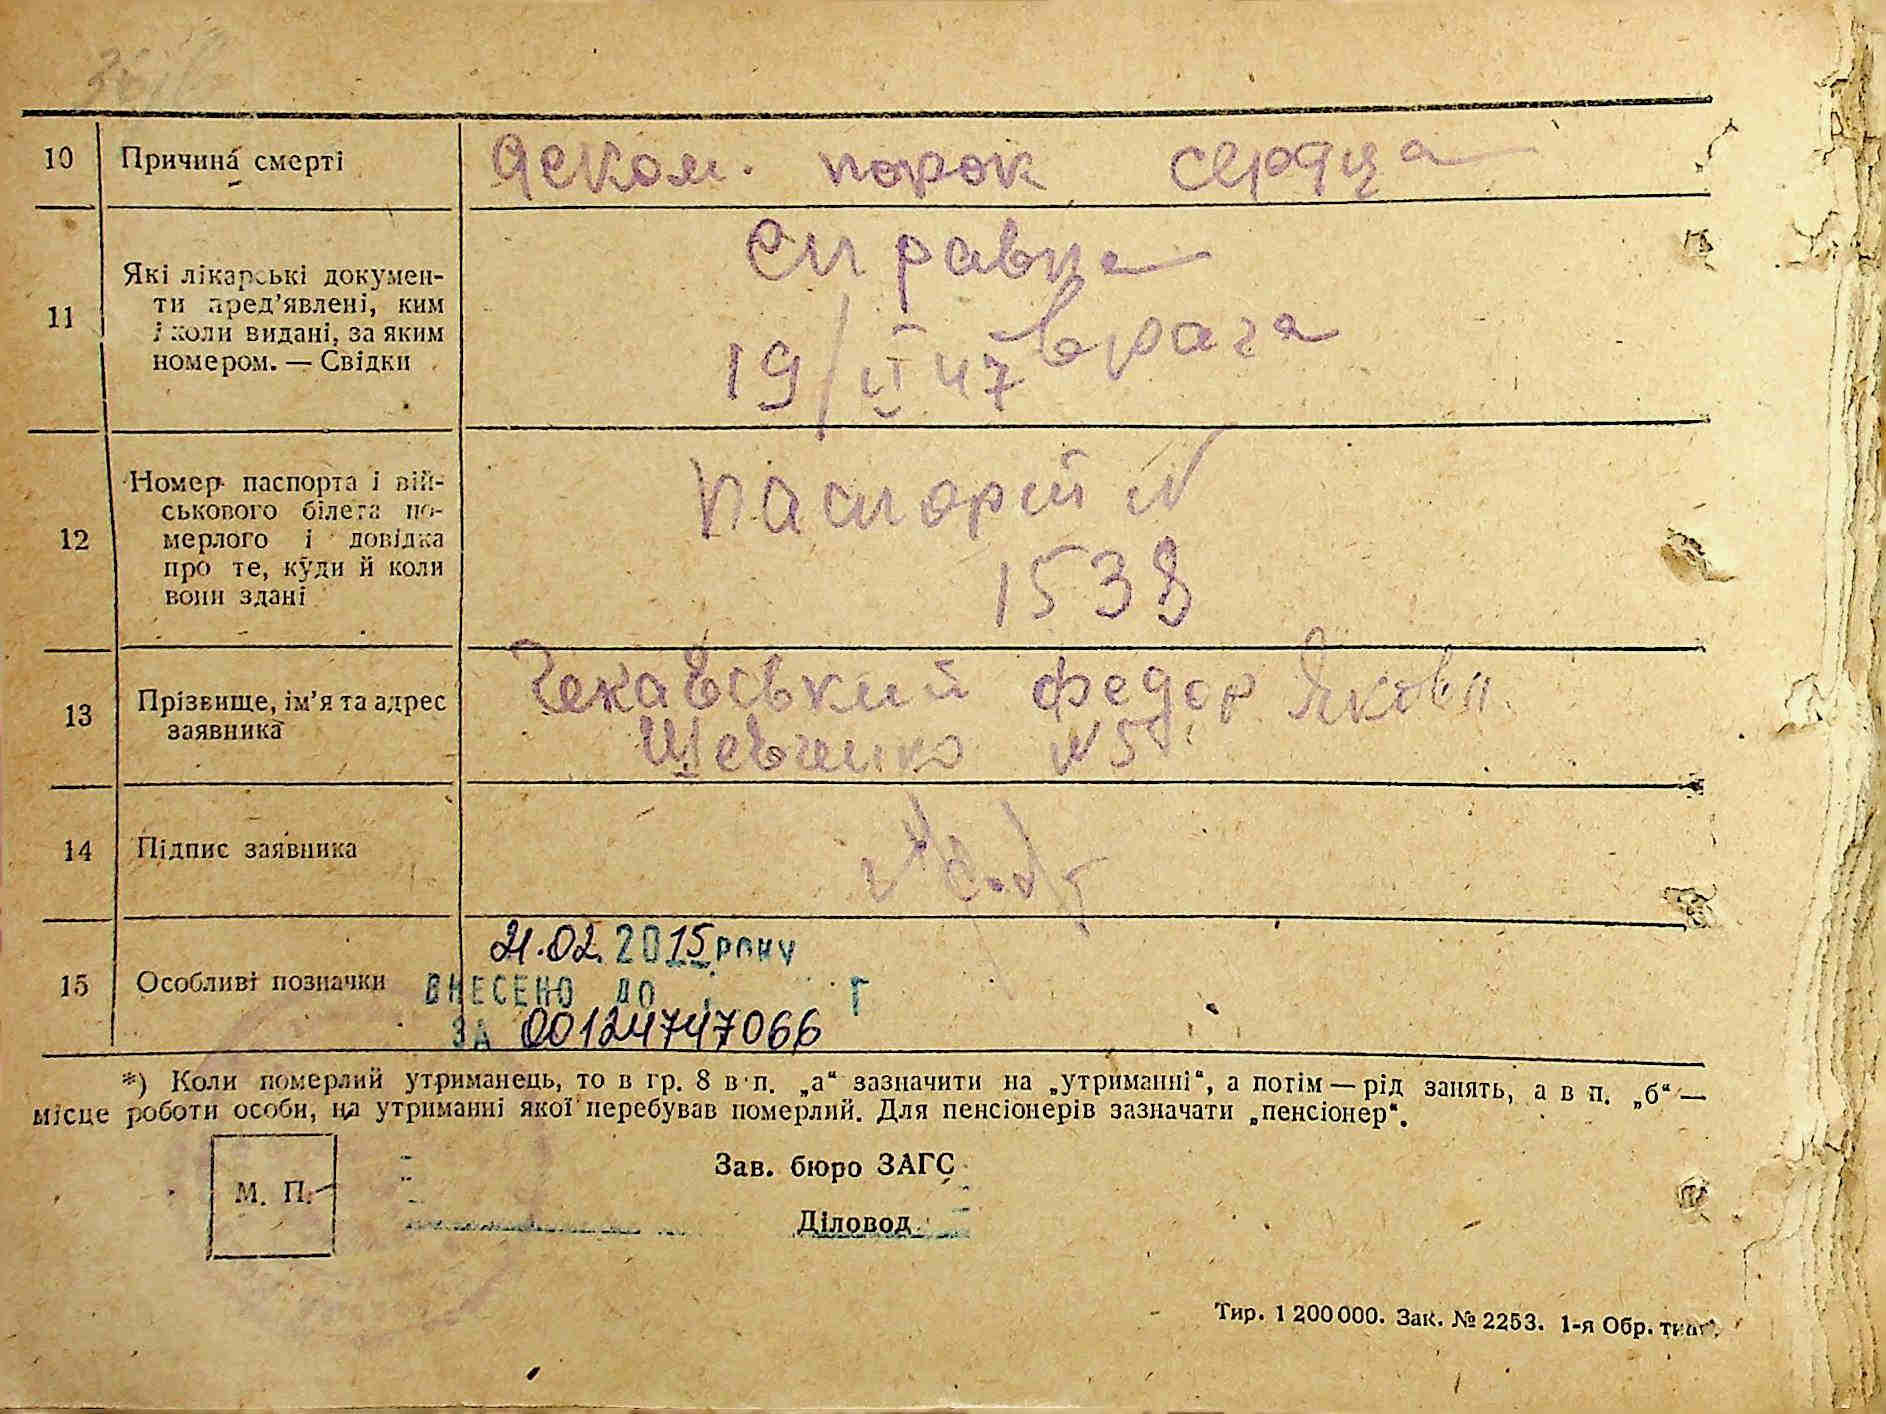 10 Причина смерті Деком. порок сердца
11 Які лікарські докумен-
ти пред'явлені, ким
і коли видані, за яким
номером. — Свідки
Справка
врача
19/II 47
12 Номер паспорта і вій-
ськового білета по-
мерлого і довідка
про те, куди й коли
вони здані
паспорт N
1538
13 Прізвище, ім'я та адрес
заявника
Чекаєвський Федор Яковл.
Шевченко N 5
14 Підпис заявника
15 Особливі позначки
21.02.2015 року
ВНЕСЕНО ДО Г
ЗА 00124747066
*) Коли померлий утриманець, то в гр. 8 в п. „а“ зазначити на „утриманні“, а потім — рід занять, а в п. „б“ —
місце роботи особи, на утриманні якої перебував померлий. Для пенсіонерів зазначати „пенсіонер“.
М. П.
Зав. бюро ЗАГС
Діловод
Тир. 1 200 000. Зак. № 2253. 1-я Обр. тип.